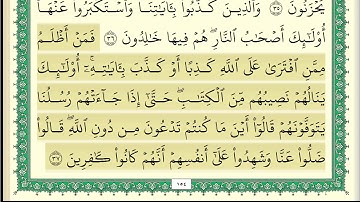 يَحْزَنُونَ ٣٥ وَٱلَّذِينَ كَذَّبُوا۟ بِـَٔايَـٰتِنَا وَٱسْتَكْبَرُوا۟ عَنْهَآ
أُو۟لَـٰٓئِكَ أَصْحَـٰبُ ٱلنَّارِ ۖ هُمْ فِيهَا خَـٰلِدُونَ ٣٦ فَمَنْ أَظْلَمُ
مِمَّنِ ٱفْتَرَىٰ عَلَى ٱللَّهِ كَذِبًا أَوْ كَذَّبَ بِـَٔايَـٰتِهِۦٓ ۚ أُو۟لَـٰٓئِكَ
يَنَالُهُمْ نَصِيبُهُم مِّنَ ٱلْكِتَـٰبِ ۖ حَتَّىٰٓ إِذَا جَآءَتْهُمْ رُسُلُنَا
يَتَوَفَّوْنَهُمْ قَالُوٓا۟ أَيْنَ مَا كُنتُمْ تَدْعُونَ مِن دُونِ ٱللَّهِ ۖ قَالُوا۟
ضَلُّوا۟ عَنَّا وَشَهِدُوا۟ عَلَىٰٓ أَنفُسِهِمْ أَنَّهُمْ كَانُوا۟ كَـٰفِرِينَ ٣٧
١٥٤